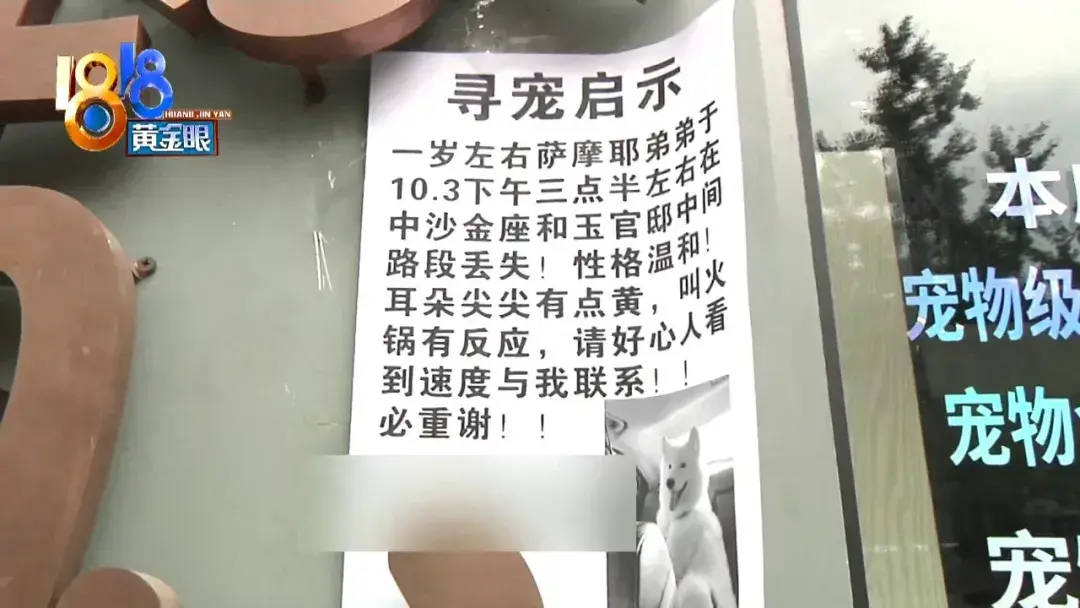 1818
HUANG JIN YAN
黄金眼
寻宠启示
一岁左右萨摩耶弟弟于
10.3下午三点半左右在
中沙金座和玉官邸中间
路段丢失！性格温和！
耳朵尖尖有点黄，叫火
锅有反应，请好心人看
到速度与我联系！！
必重谢！！
本
宠物级
宠物
宠